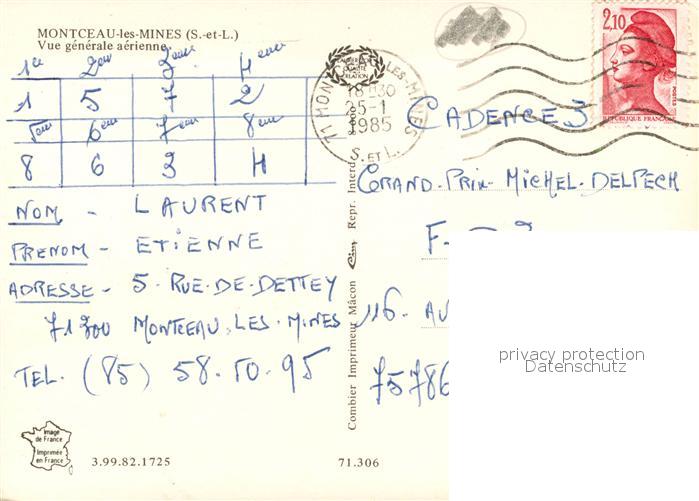 MONTCEAU-les-MINES (S.-et-L.)
Vue générale aérienne
1ère 2eme 3eme 4eme
1 5 7 2
5eme 6eme 7eme 8eme
8 6 3 4
NOM - LAURENT
PRENOM - ETIENNE
ADRESSE - 5. RUE. DE. DETTEY
71300 MONTCEAU. LES. MINES
TEL. (85) 58.50.95
Image
de France
Imprimée
en France
3.99.82.1725
71.306
Combier Imprimeur Mâcon Cim Repr. Interd.
QUALITÉ
CRÉATION
71 MONTCEAU LES-MINES
18 H30
25-1
1985
S. ET L.
2,10
POSTES
REPUBLIQUE FRANÇAISE
CADENCE 3
GRAND. PRIX. MICHEL. DELPECH
116. AV
75786
privacy protection
Datenschutz